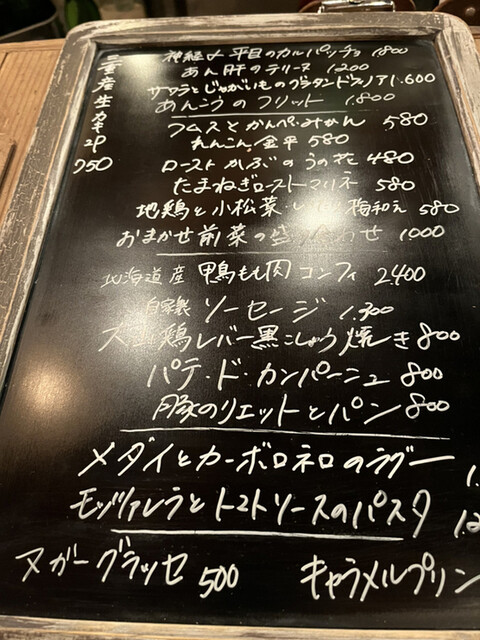 三重産生カキ2P 750
神経〆平目のカルパッチョ 1.800
あん肝のテリーヌ 1200
サワラとじゃがいものグラタンドフィノア 1.600
あんこうのフリット 1.800
フムスとかんぺいみかん 580
れんこん金平 580
ローストかぶのうの花 480
たまねぎローストマリネ 580
地鶏と小松菜 梅和え 580
おまかせ前菜の盛り合わせ 1.000
北海道産 鴨もも肉コンフィ 2.400
自家製 ソーセージ 1.300
大山鶏レバー黒こしょう焼き 800
パテ・ド・カンパーニュ 800
豚のリエットとパン 800
メダイとカーボロネロのラグー
モッツァレラとトマトソースのパスタ
ヌガーグラッセ 500
キャラメルプリン